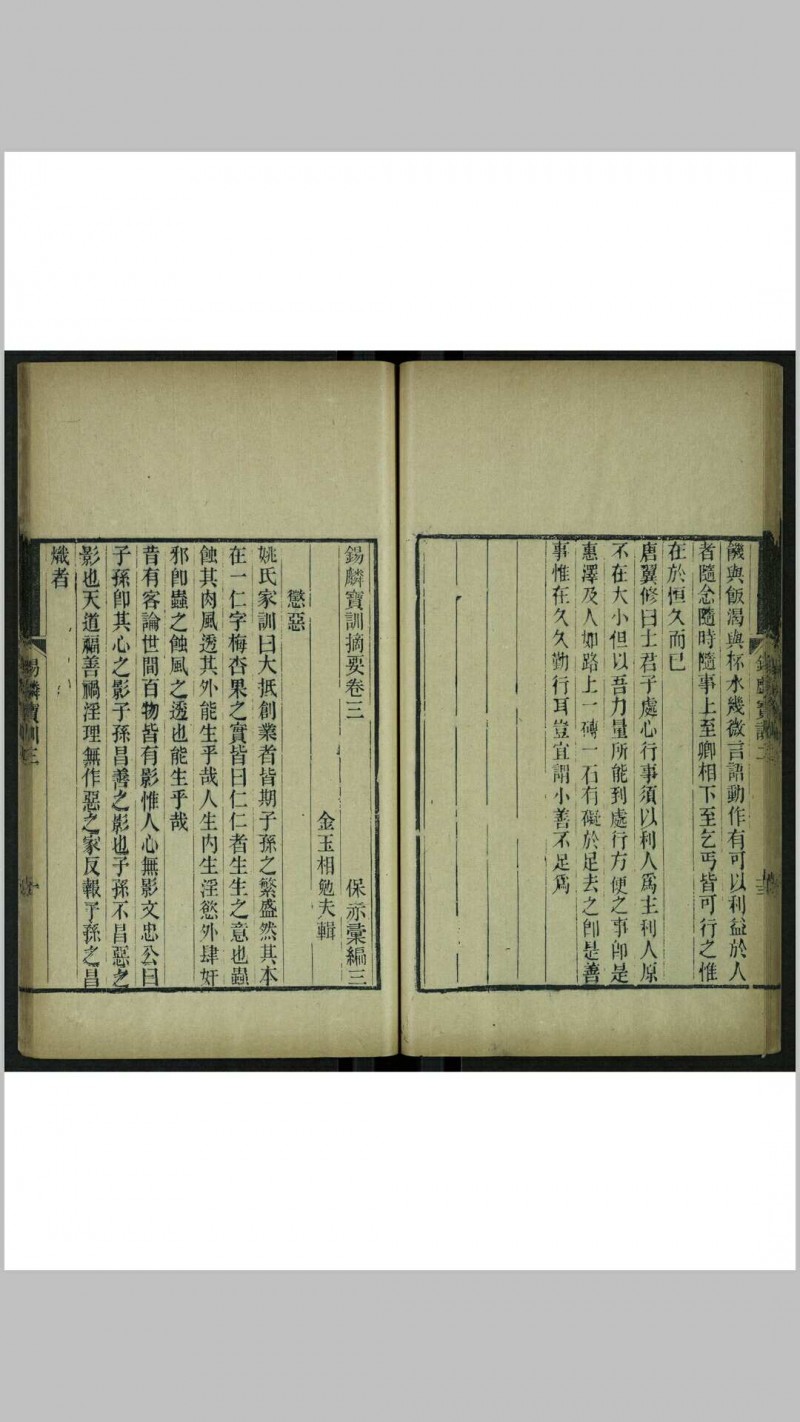 饑與飯渴與杯水幾微言語動作有可以利益於人
者隨念隨時隨事上至卿相下至乞丐皆可行之惟
在於恒久而已
唐翼修曰士君子處心行事須以利人爲主利人原
不在大小但以吾力量所能到處行方便之事卽是
惠澤及人如路上一磚一石有礙於足去之卽是善
事惟在久久勤行耳豈宜謂小善不足爲
錫麟寶訓摘要卷三 保赤彙編三
金玉相勉夫輯
懲惡
姚氏家訓曰大抵創業者皆期子孫之繁盛然其本
在一仁字梅杏果之實皆曰仁仁者生生之意也蟲
蝕其肉風透其外能生乎哉人生内生淫慾外肆奸
邪卽蟲之蝕風之透也能生乎哉
昔有客論世間百物皆有影惟人心無影文忠公曰
子孫卽其心之影子孫昌善之影也子孫不昌惡之
影也天道福善禍淫理無作惡之家反報子孫之昌
熾者
錫麟寶訓三